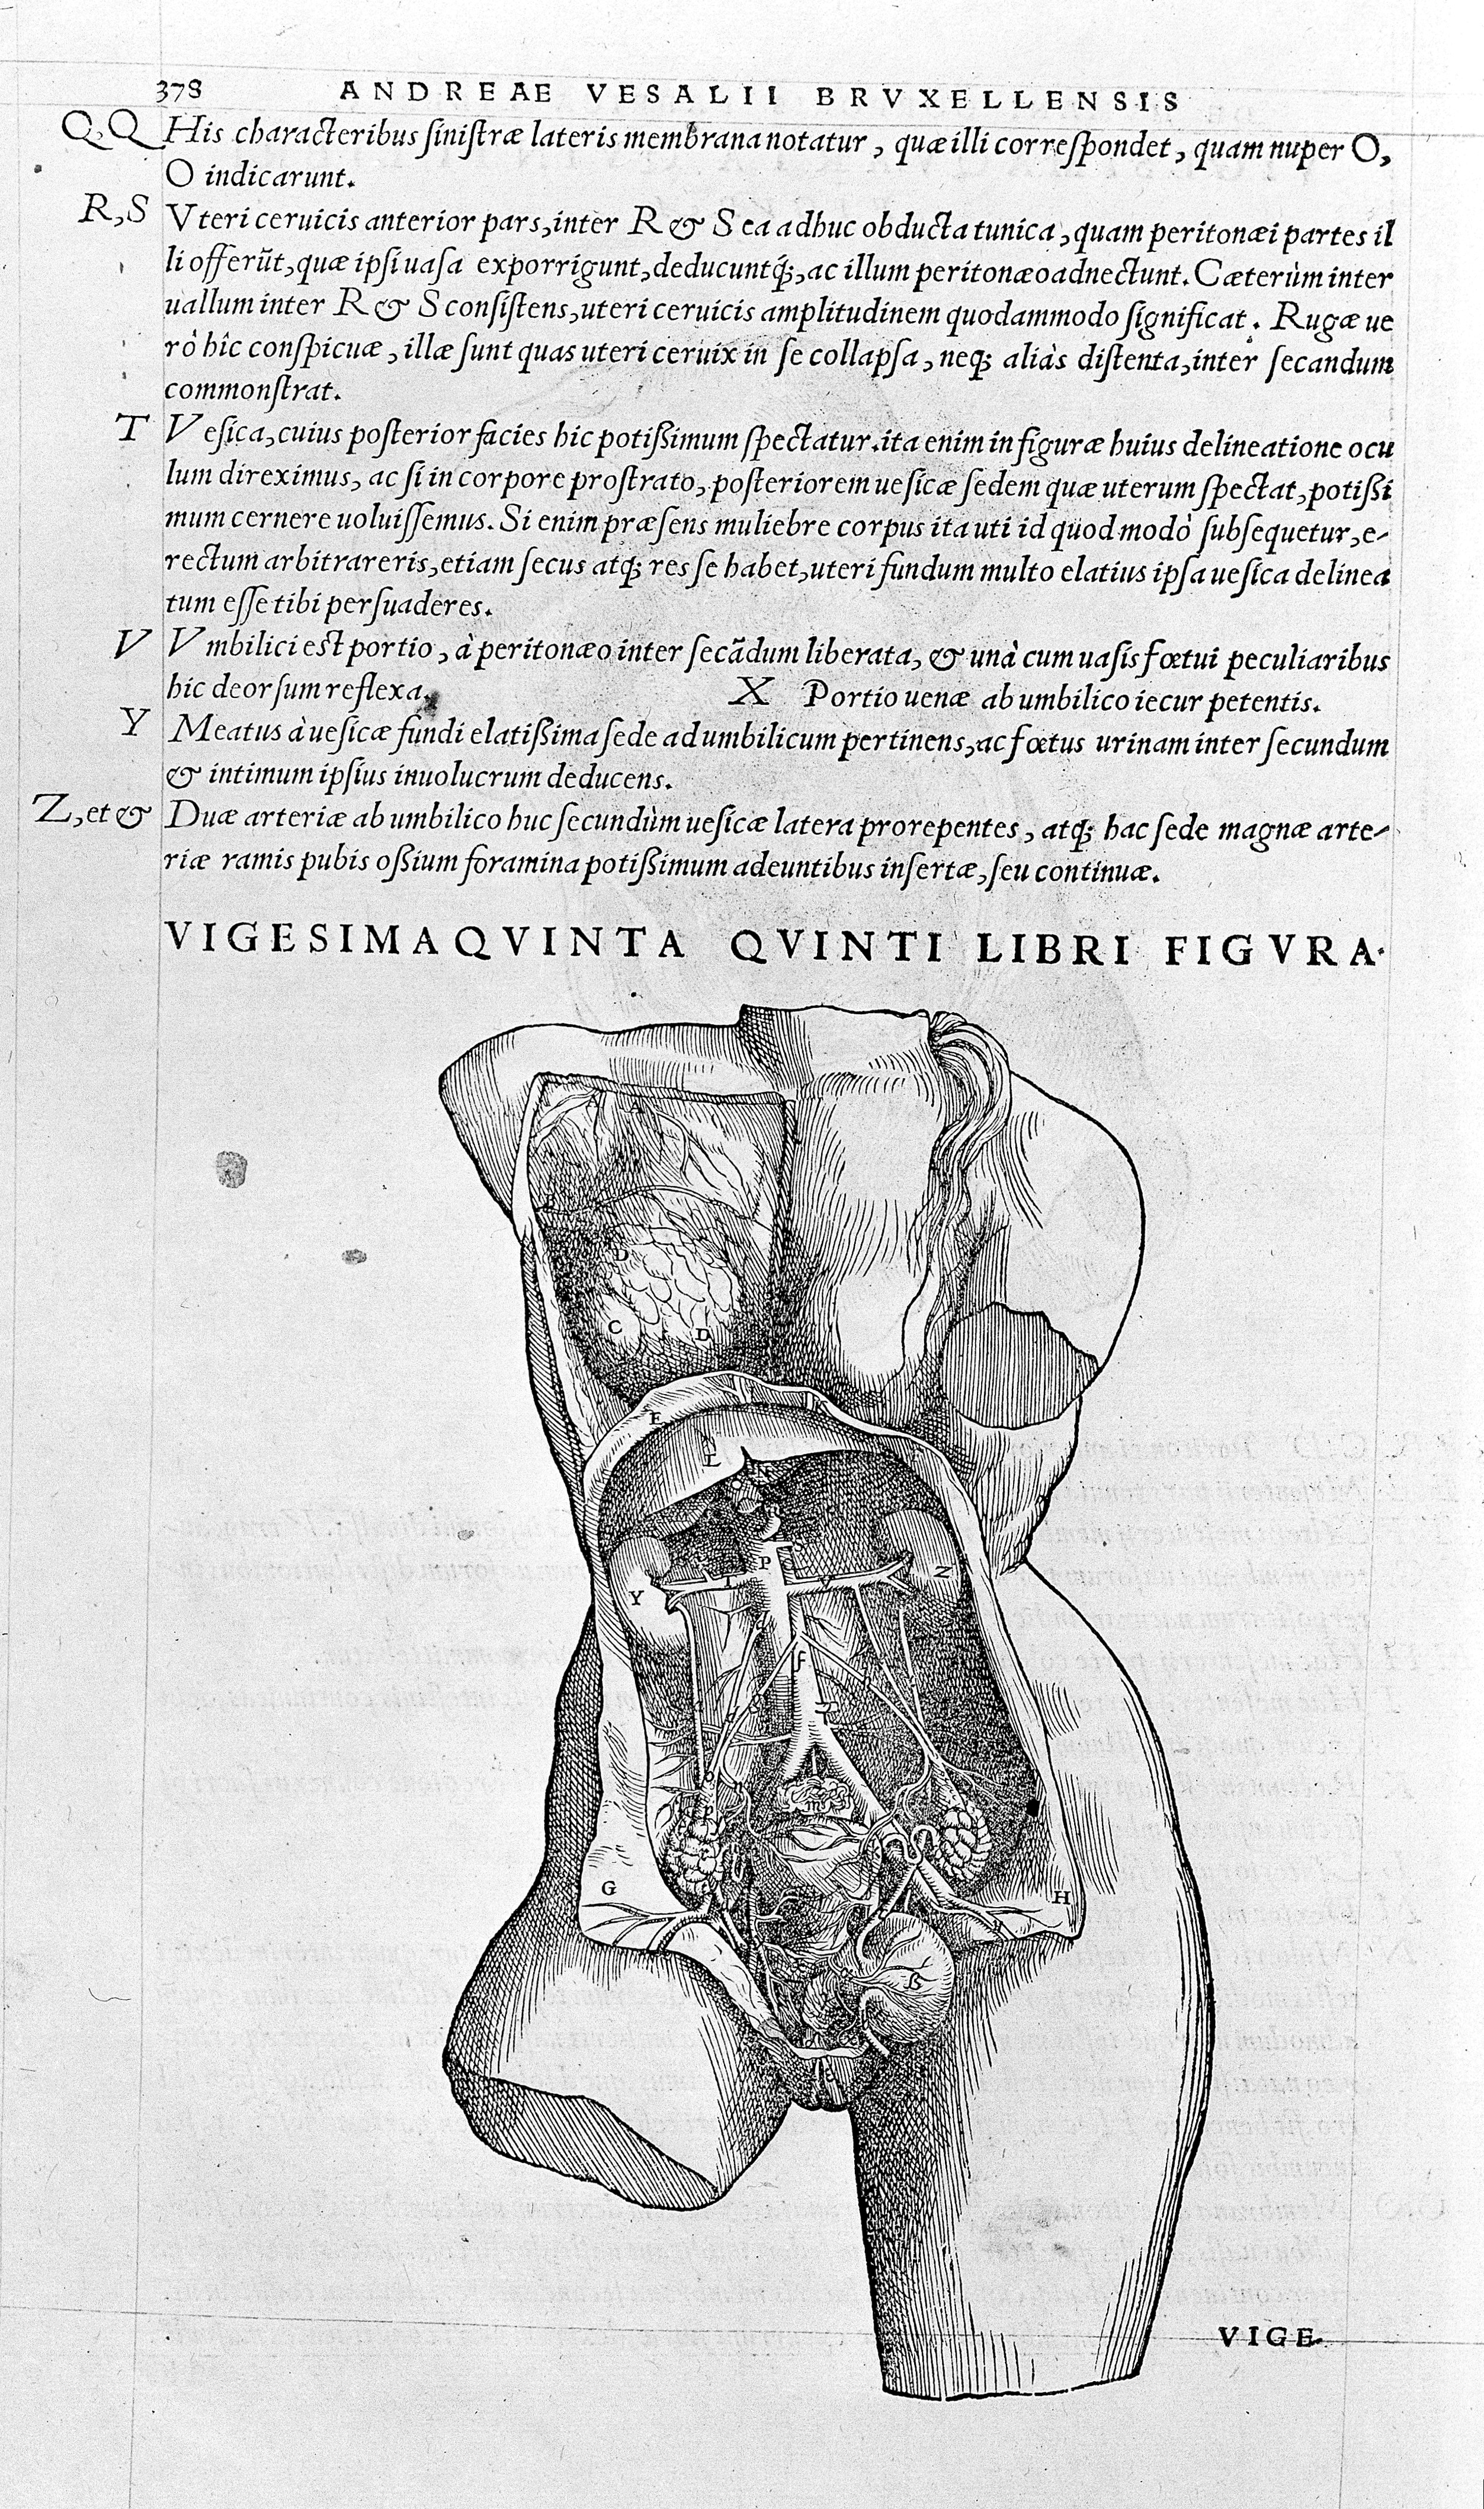 378 ANDREAE VESALII BRVXELLENSIS
Q,Q His characteribus sinistræ lateris membrana notatur, quæ illi correspondet, quam nuper O,
O indicarunt.
R,S Vteri ceruicis anterior pars, inter R & S ea adhuc obducta tunica, quam peritonæi partes il
li offerũt, quæ ipsi uasa exporrigunt, deducuntq́;, ac illum peritonæo adnectunt. Cæterùm inter
uallum inter R & S consistens, uteri ceruicis amplitudinem quodammodo significat. Rugæ ue
rò hîc conspicuæ, illæ sunt quas uteri ceruix in se collapsa, neq; aliàs distenta, inter secandum
commonstrat.
T Vesica, cuius posterior facies hic potißimum spectatur. ita enim in figuræ huius delineatione ocu
lum direximus, ac si in corpore prostrato, posteriorem uesicæ sedem quæ uterum spectat, potißi
mum cernere uoluissemus. Si enim præsens muliebre corpus ita uti id quod modò subsequetur, e-
rectum arbitrareris, etiam secus atq; res se habet, uteri fundum multo elatius ipsa uesica delinea
tum esse tibi persuaderes.
V Vmbilici est portio, à peritonæo inter secãdum liberata, & unà cum uasis fœtui peculiaribus
hic deorsum reflexa. X Portio uenæ ab umbilico iecur petentis.
Y Meatus à uesicæ fundi elatißima sede ad umbilicum pertinens, ac fœtus urinam inter secundum
& intimum ipsius inuolucrum deducens.
Z, et & Duæ arteriæ ab umbilico huc secundùm uesicæ latera prorepentes, atq; hac sede magnæ arte-
riæ ramis pubis oßium foramina potißimum adeuntibus insertæ, seu continuæ.
VIGESIMAQVINTA QVINTI LIBRI FIGVRA.
A A
D
C D
E
L
P
Y T V Z
f
m
G H
VIGE-